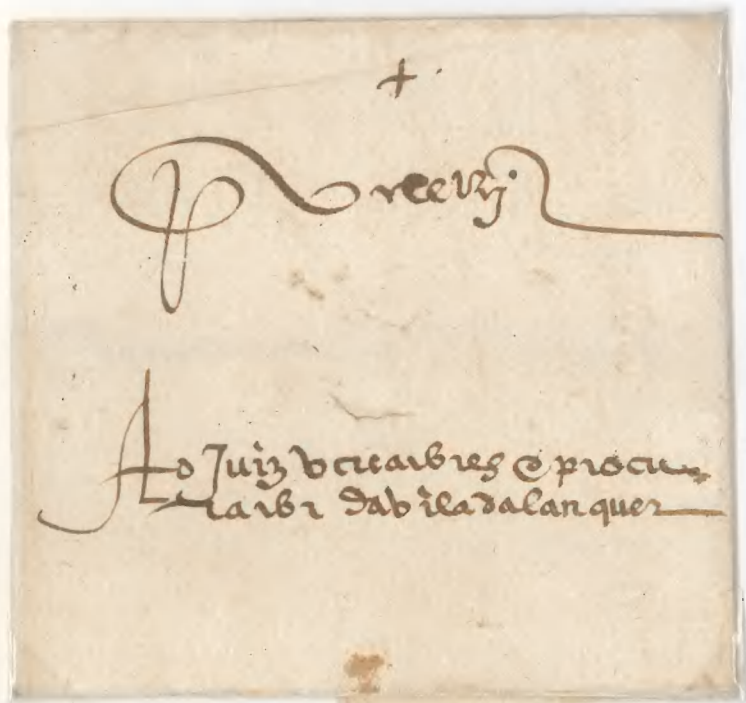 +
Ao Juiz vereadores e procu-
rador da vila dalanquer